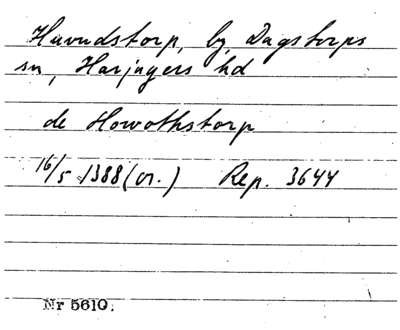 Huvudstorp, by, Dagstorps
sn, Harjagers hd
de Howothstorp
16/5 1388 (or.) Rep. 3644
Nr 5610.